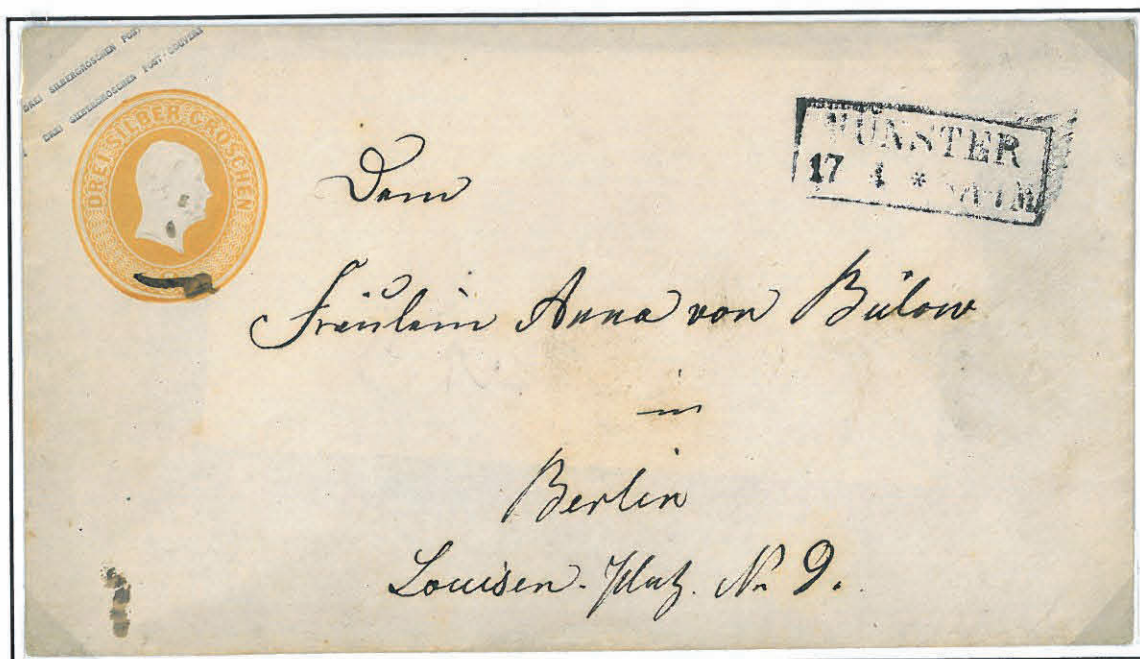 DREI SILBERGROSCHEN POST
DREI SILBERGROSCHEN POST-COUVERT
DREI SILBER GROSCHEN
MÜNSTER
17 4 *
Dem
Fräulein Anna von Bülow
in
Berlin
Louisen-Platz. No 9.